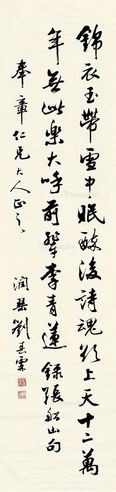 錦衣玉帶雪中眠醉後詩魂欲上天十二萬
年無此樂大呼前輩李青蓮 錄張船山句
奉章仁兄大人正之
潤琴劉春霖